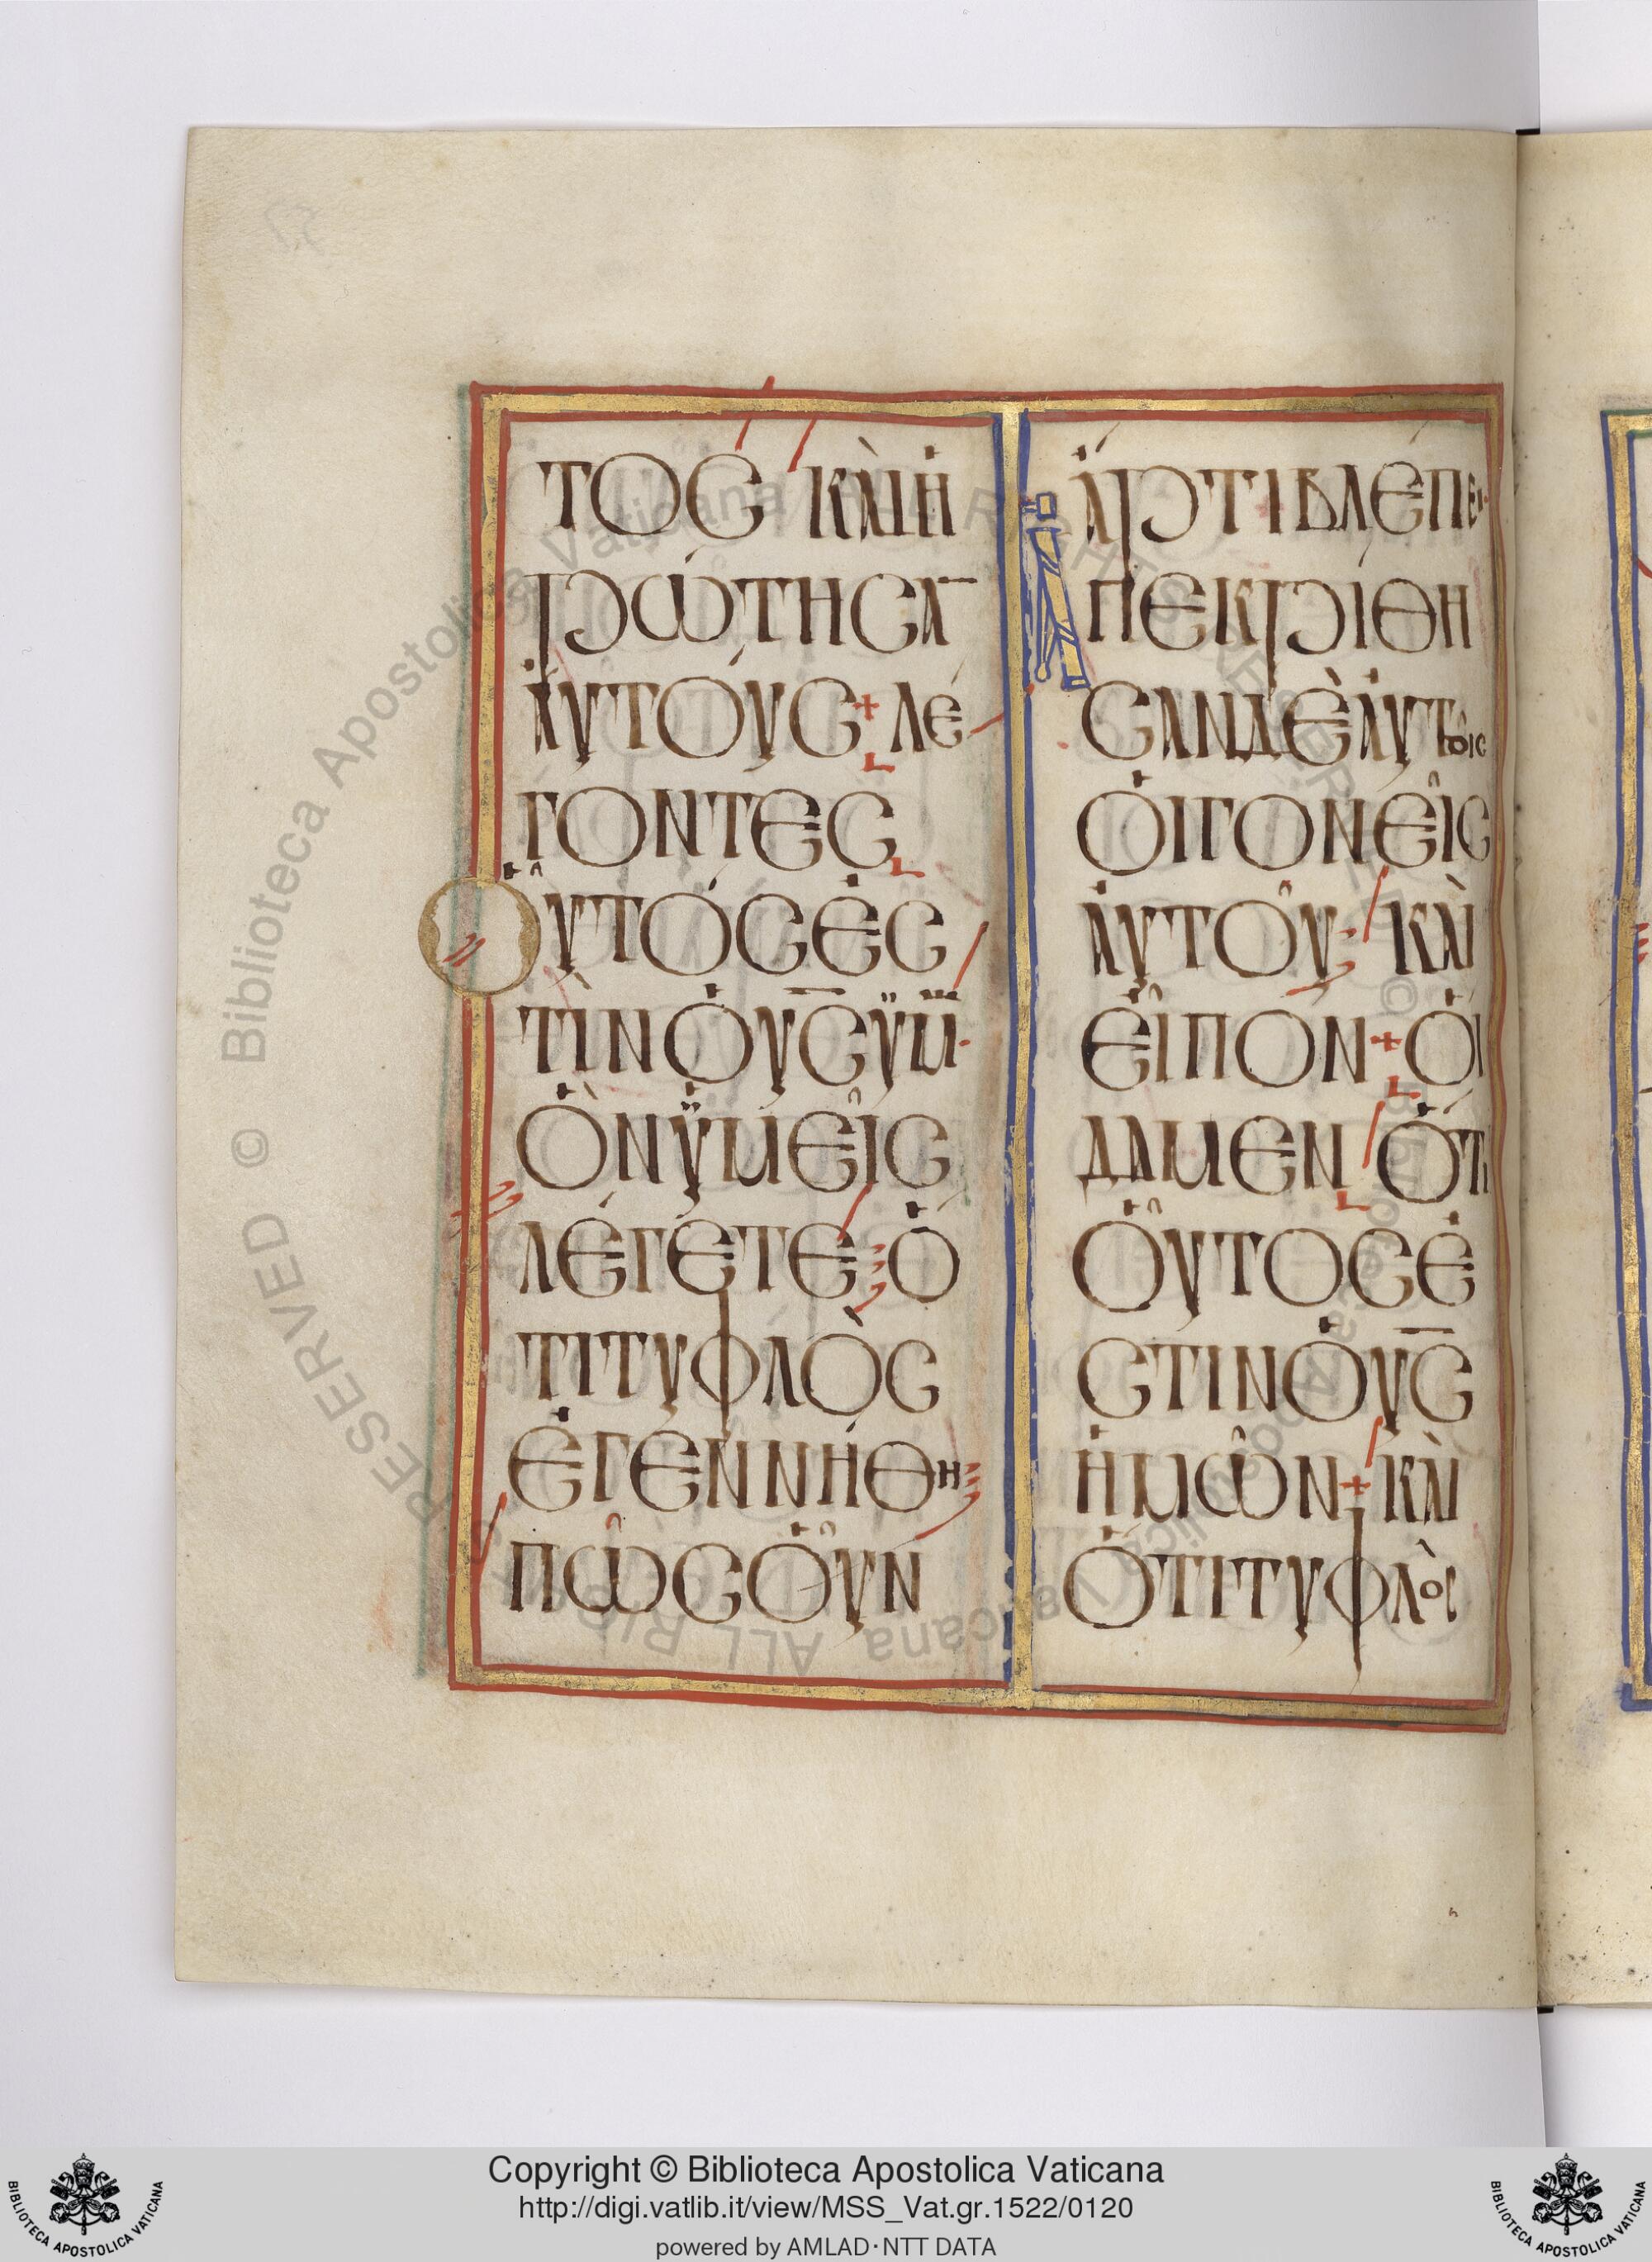 ΤΟΣ ΚΑῚ Ἠ
ΡΏΤΗΣΑΝ
ἈΥΤΟΎΣ + ΛΈ
ΓΟΝΤΕΣ
ὟΥΤΌΣ ἘΣ
ΤῚΝ Ὁ ΥΣ̅ ΫΜ·
ὉΝ ΫΜΕΙ͂Σ
ΛΈΓΕΤΕ Ὅ
ΤΙ ΤΥΦΛῸΣ
ἘΓΕΝΝΉΘΗ
ΠΩ͂Σ ὈΥ͂Ν
ἌΡΤΙ ΒΛΈΠΕΙ·
ἈΠΕΚΡΊΘΗ
ΣΑΝ ΔῈ ἈΥΤΟΙ͂Σ
ὉΙ ΓΟΝΕΙ͂Σ
ἈΥΤΟΥ͂ ΚΑῚ
ἘΙ͂ΠΟΝ + ὌΙ
ΔΑΜΕΝ ὍΤΙ
ὉΥ͂ΤΟΣ Ἐ
ΣΤΙΝ Ὁ ΥΣ̅
ἩΜΩ͂Ν + ΚΑῚ
ὍΤΙ ΤΥΦΛῸΣ
© Biblioteca Apostolica Vaticana ALL RIGHTS RESERVED
Copyright © Biblioteca Apostolica Vaticana
http://digi.vatlib.it/view/MSS_Vat.gr.1522/0120
powered by AMLAD·NTT DATA
BIBLIOTECA APOSTOLICA VATICANA
BIBLIOTECA APOSTOLICA VATICANA